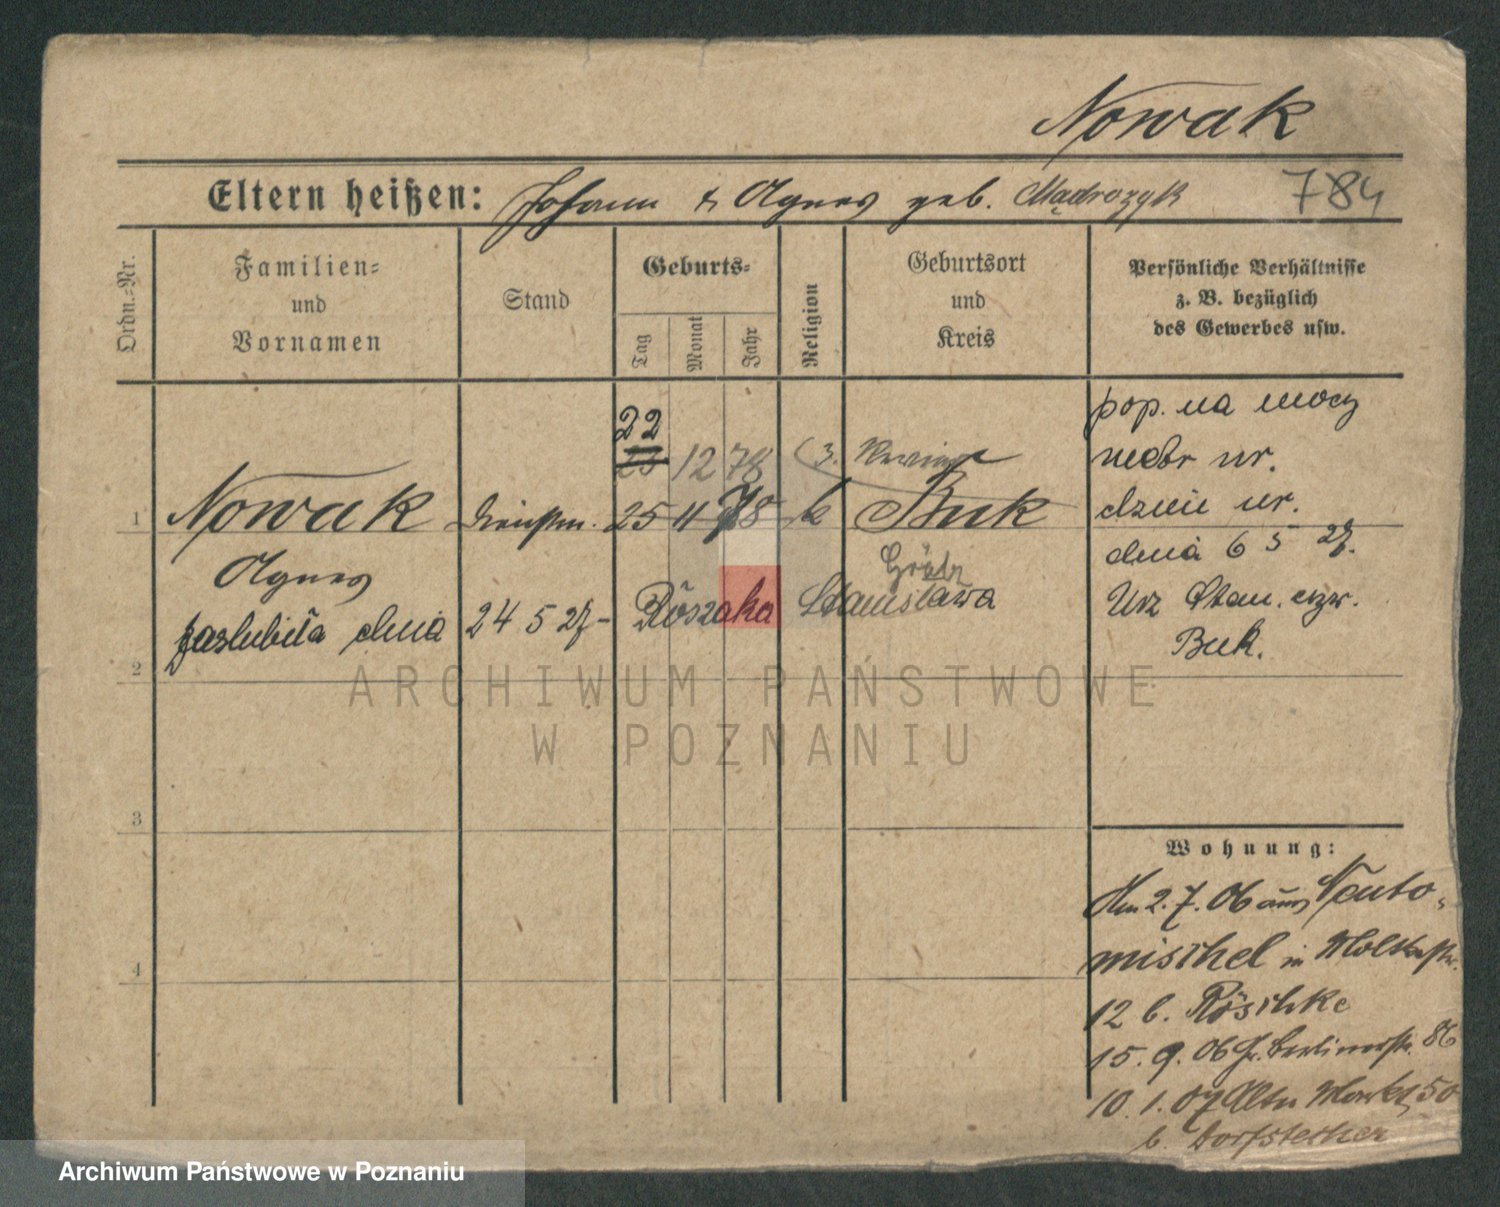 Nowak
Eltern heißen: Johann & Agnes geb. Mądrozyk
784
Ordn.-Nr.
Familien-
und
Vornamen
Stand
Geburts-
Tag
Monat
Jahr
Religion
Geburtsort
und
Kreis
Persönliche Verhältnisse
z. B. bezüglich
des Gewerbes usw.
22
23 12 78
1 Nowak Dienstm. 25 11 78 k Buk
Agnes
Grätz
zaślubiła dnia 24 5 27 - Rószaka Stanisława
pop. na mocy
metr ur.
dzien ur.
dnia 6 5 27.
Urz Stan. cyw.
Buk.
2
3
4
Wohnung:
Am 2.7.06 aus Neuto-
mischel in Moltkestr.
12 b. Röschke
15.9.06 Gr. Berlinerstr. 86
10.1.07 Alter Markt 50
b. Dorfstecher
ARCHIWUM PAŃSTWOWE
W POZNANIU
Archiwum Państwowe w Poznaniu